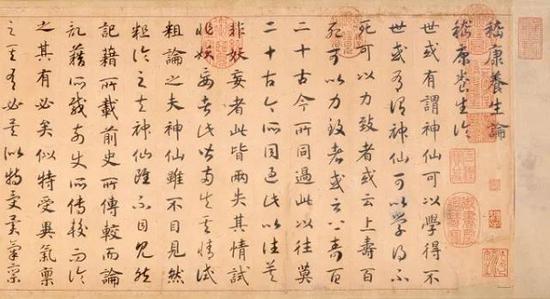 嵇康養生論
嵇康養生論
世或有謂神仙可以學得不
世或有謂神仙可以學得不
死可以力致者或云上壽百
死可以力致者或云上壽百
二十古今所同過此以往莫
二十古今所同過此以往莫
非妖妄者此皆兩失其情試
非妖妄者此皆兩失其情試
粗論之夫神仙雖不目見然
粗論之夫神仙雖不目見然
記籍所載前史所傳較而論
記籍所載前史所傳較而論
之其有必矣似特受異氣稟
之其有必矣似特受異氣稟